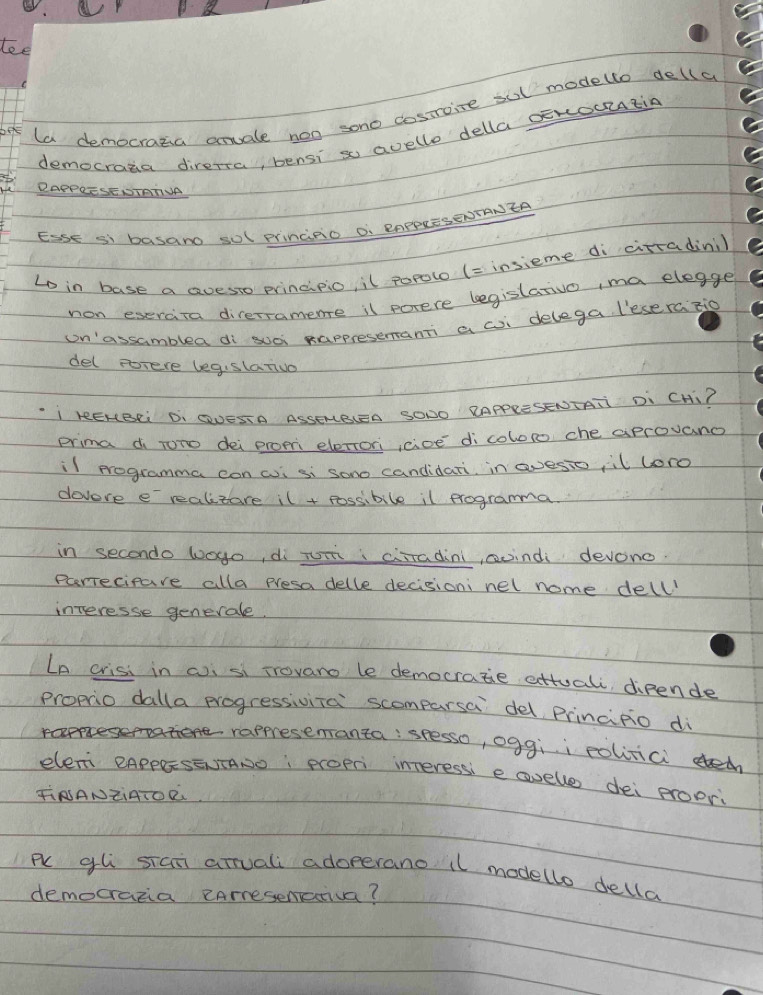 tee
La democrazia attuale non sono costruite sul modello della
democrazia diretta, bensi su quello della DEMOCRAZIA
RAPPRESENTATIVA
ESSE si basano sul principio Di RAPPRESENTANZA
↳ in base a questo principio, il popolo (= insieme di cittadini)
non esercita direttamente il potere legislativo, ma elegge
un'assamblea di suoi rappresentanti a cui delega l'esercizio
del potere legislativo
• i MEMBRI Di QUESTA ASSEMBLEA SONO RAPPRESENTATI Di CHi?
prima di tutto dei propri elettori, cioè di coloro che aprovano
il programma con cui si sono candidati. in questo, il loro
dovere e' realizare il + possibile il programma.
in secondo luogo, di tutti i cittadini, quindi devono
partecipare alla presa delle decisioni nel nome dell'
interesse generale.
LA crisi in cui si trovano le democrazie attuali dipende
proprio dalla progressività scomparsa del principio di
rappresentazione rappresentanza: spesso, oggi i politici
eletti RAPPRESENTANO i propri interessi e quello dei propri
FINANZIATORI.
PK gli stati attuali adoperano il modello della
democrazia rarresentativa?